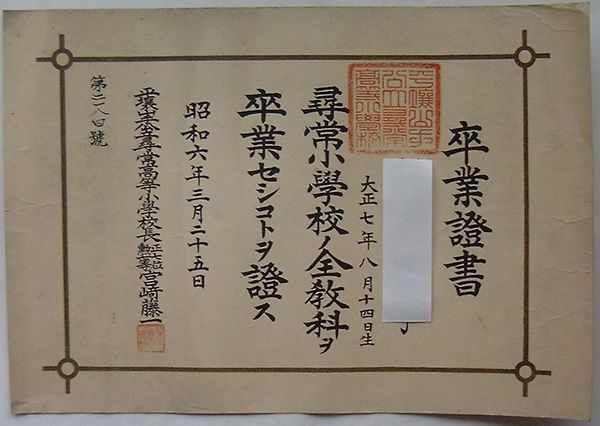 卒業證書
大正七年八月十四日生
尋常小學校ノ全教科ヲ
卒業セシコトヲ證ス
昭和六年三月二十五日
尋常高等小學校長 宮﨑藤一
號